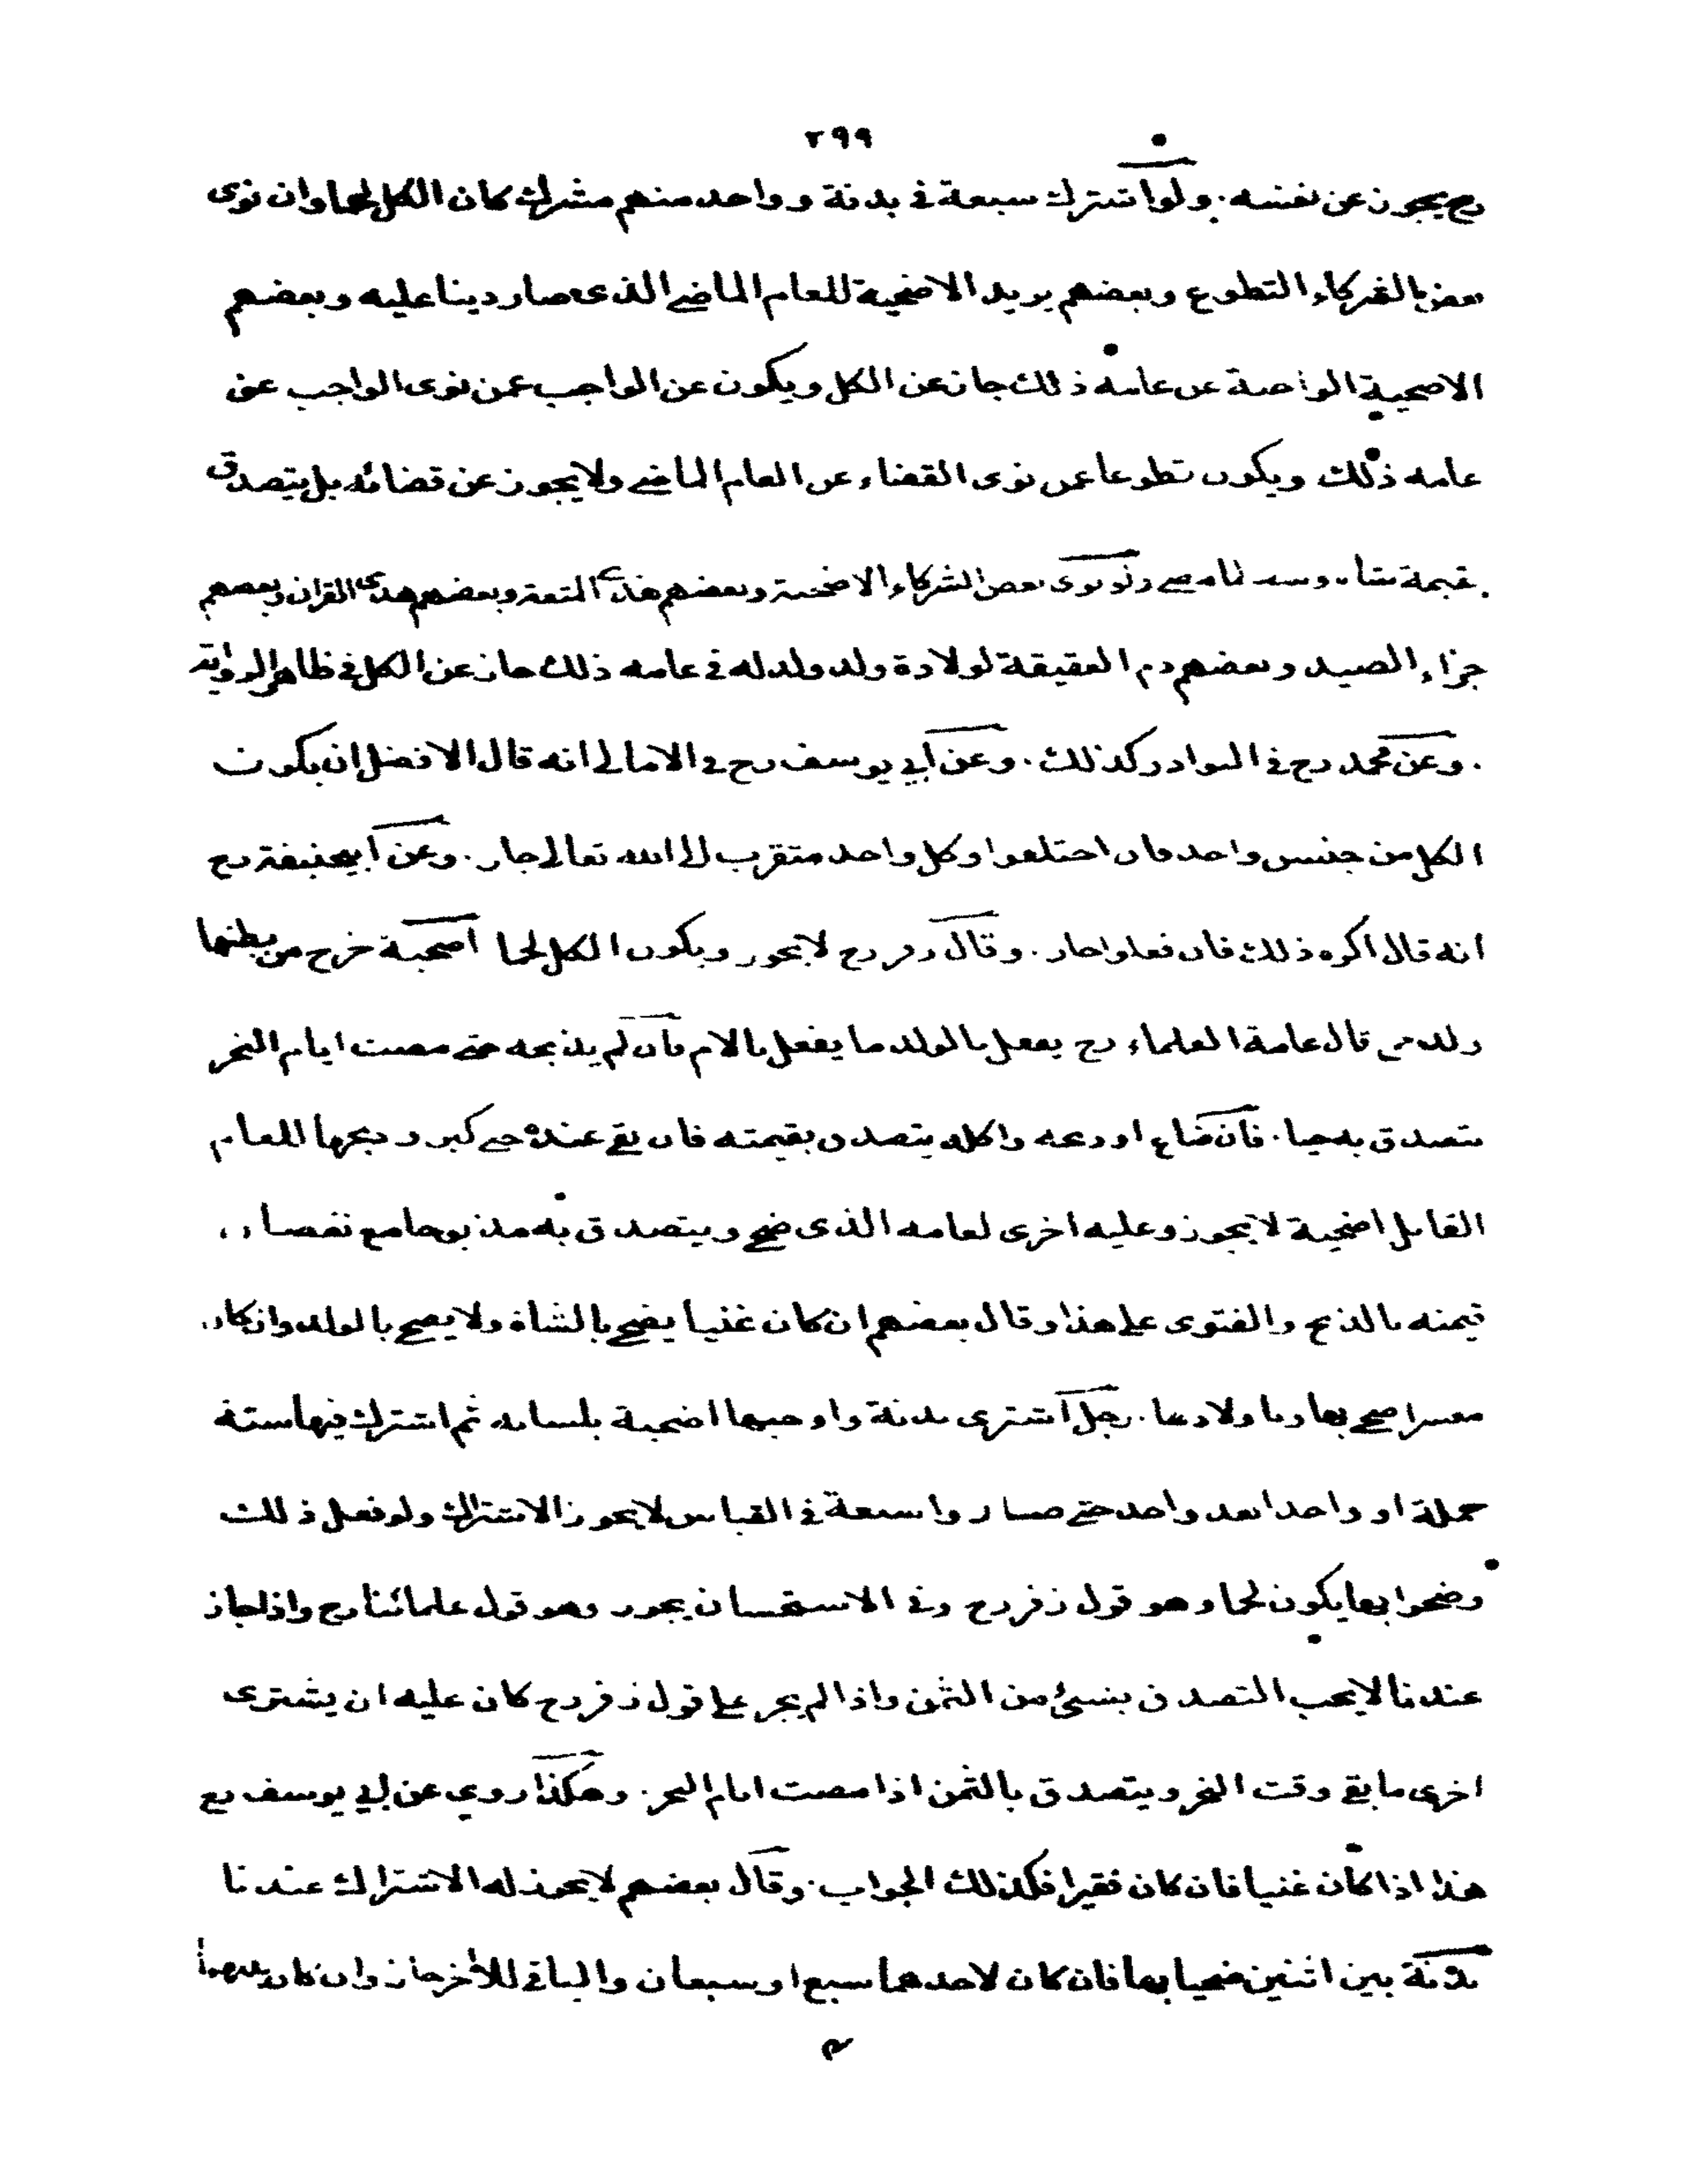 ٢٩٩
رح يجوز عن نفسه . ولو اشترك سبعة في بدنة وواحد منهم مشرك كان الكل لحما وان نوى
بعض الشركاء التطوع وبعضهم يريد الاضحية للعام الماضي الذي صار دينا عليه وبعضهم
الاضحية الواجبة عن عامه ذلك جاز عن الكل ويكون عن الواجب عمن نوى الواجب عن
عامه ذلك ويكون تطوعا عمن نوى القضاء عن العام الماضي ولا يجوز عن قضائه بل يتصدق
بقيمة شاة وسط لما مضى ولو نوى بعض الشركاء الاضحية وبعضهم هدي المتعة وبعضهم هدى القران وبعضهم
جزاء الصيد وبعضهم دم العقيقة لولادة ولد ولد له في عامه ذلك جاز عن الكل في ظاهر الرواية
. وعن محمد رح في النوادر كذلك . وعن أبي يوسف رح في الامالي انه قال الافضل ان يكون
الكل من جنس واحد فان اختلفوا وكل واحد متقرب الى الله تعالى جاز . وعن أبي حنيفة رح
انه قال اكره ذلك فان فعلوا جاز . وقال زفر رح لا يجوز ويكون الكل لحما اضحية خرج من بطنها
ولد حي قال عامة العلماء رح يفعل بالولد ما يفعل بالام فان لم يذبحه حتى مضت ايام النحر
يتصدق به حيا . فان ضاع او ذبحه واكله يتصدق بقيمته فان بقي عنده حتى كبر وذبحها للعام
القابل اضحية لا يجوز وعليه اخرى لعامه الذي ضحى ويتصدق به مذبوحا مع نقصان
قيمته بالذبح والفتوى على هذا وقال بعضهم ان كان غنيا يضحي بالشاة ولا يضحي بالولد وان كان
معسرا ضحى بها وبا ولادها . رجل اشترى بدنة واوجبها اضحية بلسانه ثم اشترك فيها ستة
جملة او واحدا بعد واحد حتى صاروا سبعة في القياس لا يجوز الاشتراك ولو فعل ذلك
وضحوا بها يكون لحما وهو قول زفر رح وفي الاستحسان يجوز وهو قول علمائنا رح واذا جاز
عندنا لا يجب التصدق بشئ من الثمن واذا لم يجز على قول زفر رح كان عليه ان يشترى
اخرى ما بقي وقت النحر ويتصدق بالثمن اذا مضت ايام النحر . وهكذا روي عن ابي يوسف رح
هذا اذا كان غنيا فان كان فقيرا فكذلك الجواب . وقال بعضهم لا يجوز له الاشتراك عندنا
بدنة بين اثنين ضحيا بها فان كان لاحدهما سبع او سبعان والباقي للأخر جاز وان كان بينهما